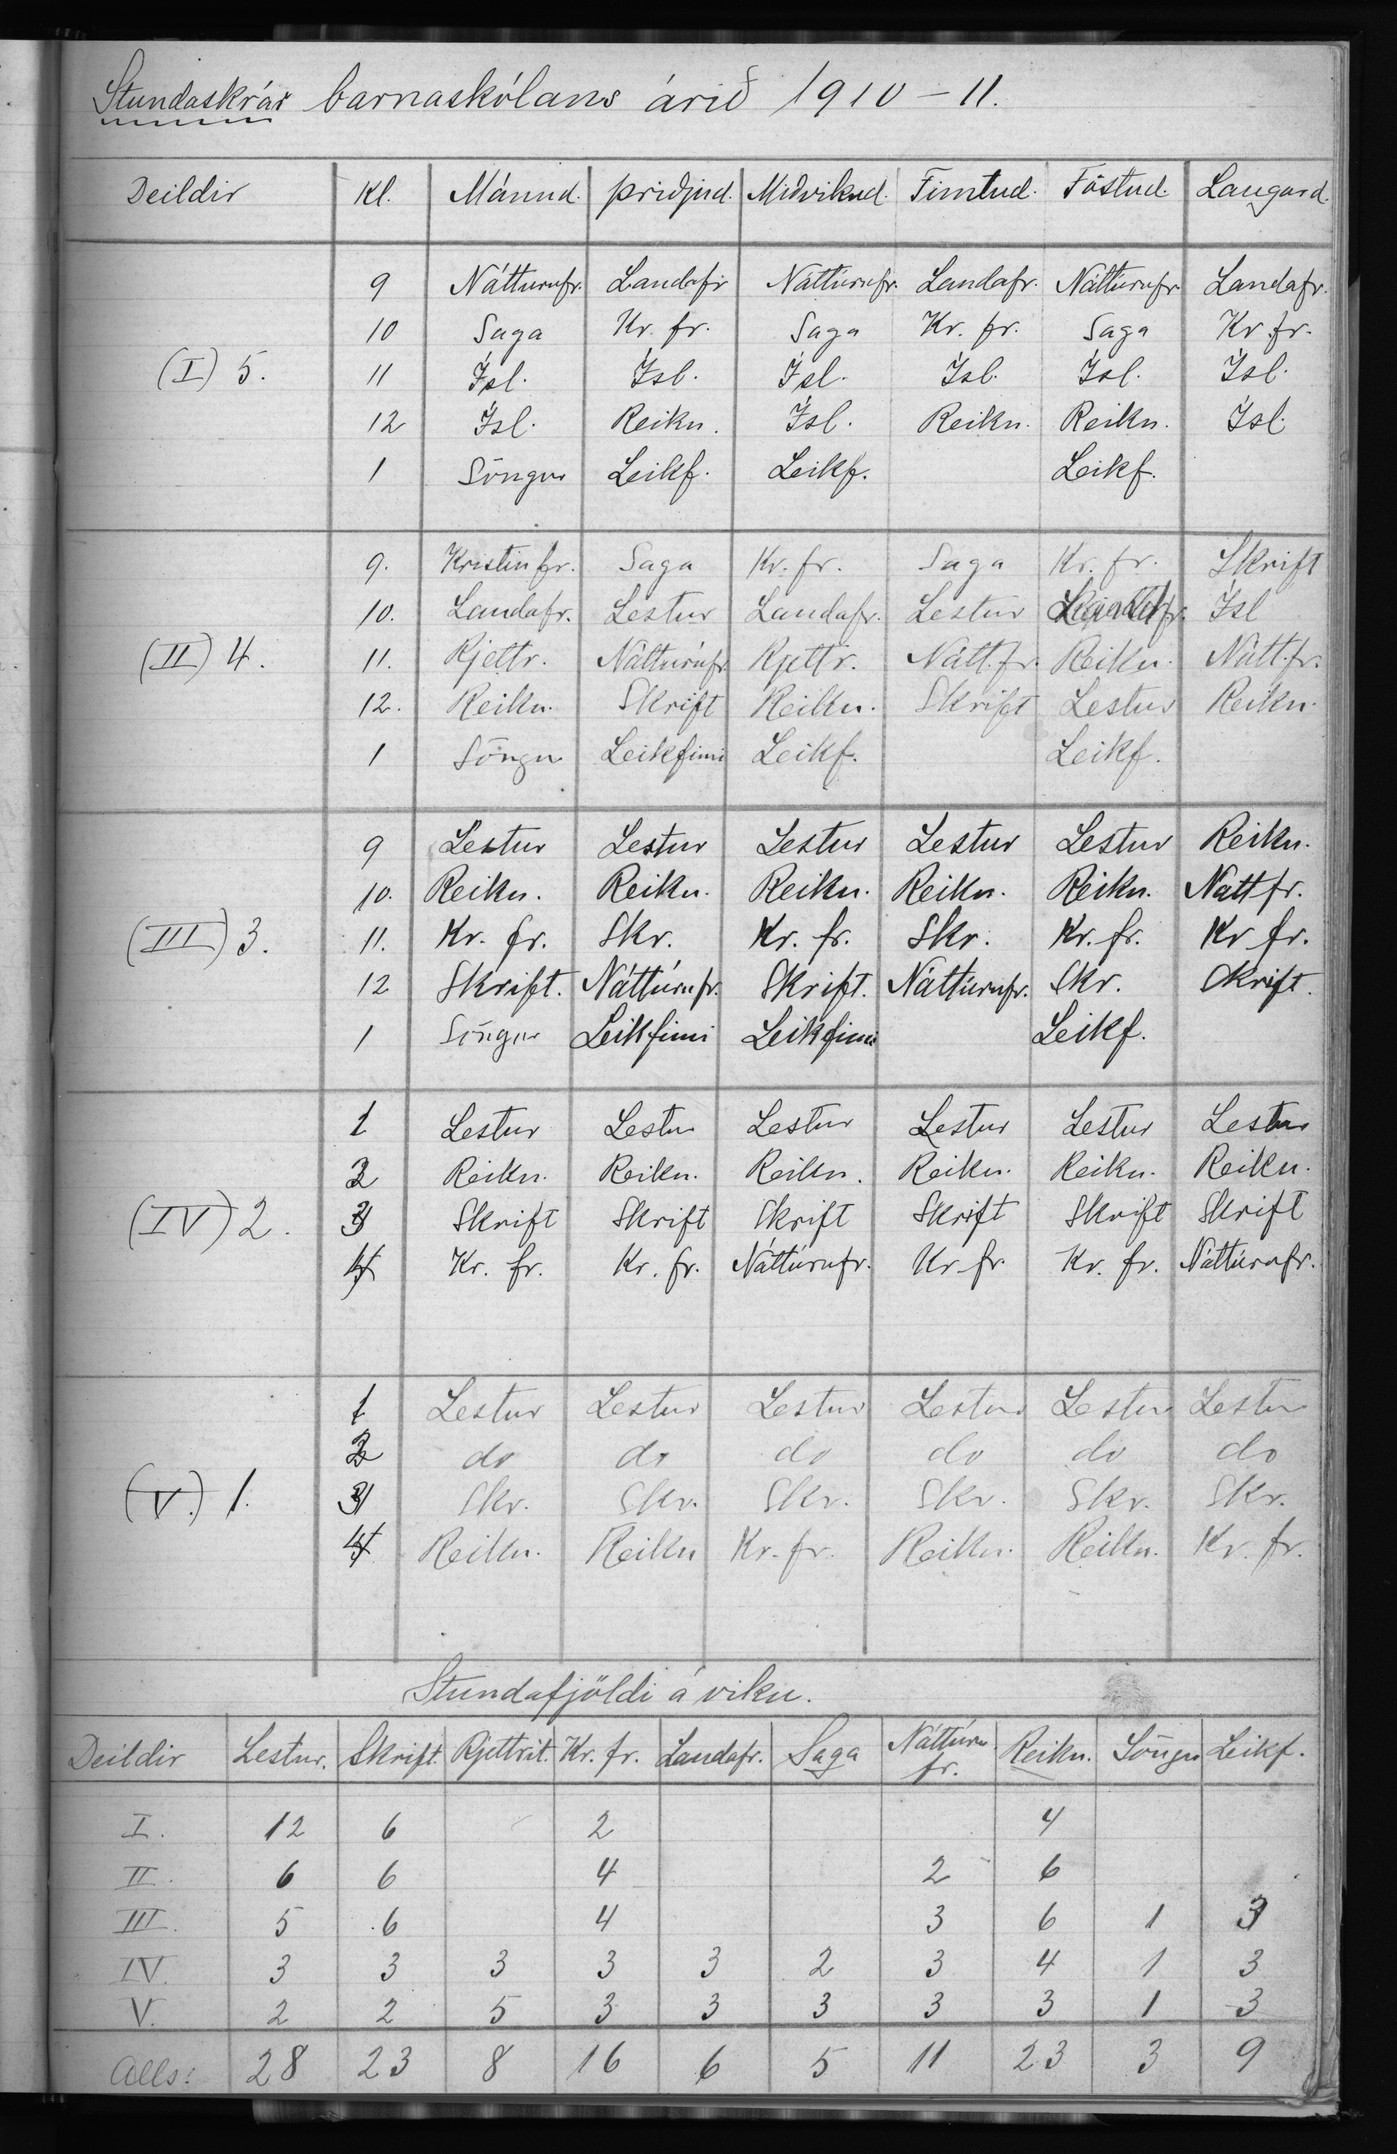 Stundaskrár barnaskólans árið 1910-11.
Deildir Kl. Mánud. Þriðjud. Miðvikud. Fimtud. Föstud. Laugard.
9 Náttúrufr. Landafr Náttúrufr. Landafr. Náttúrufr Landafr.
10 Saga Kr. fr. Saga Kr. fr. Saga Kr. fr.
(I) 5. 11 Ísl. Ísl. Ísl. Ísl. Ísl. Ísl.
12 Ísl. Reikn. Ísl. Reikn. Reikn. Ísl.
1 Söngur Leikf. Leikf. Leikf.
9. Kristinfr. Saga Kr. fr. Saga Kr. fr. Skrift
10. Landafr. Lestur Landafr. Lestur Landafr. Ísl
(II) 4. 11. Rjettr. Náttúrufr Rjettr. Nátt.fr. Reikn. Nátt.fr.
12. Reikn. Skrift Reikn. Skrift Lestur Reikn.
1 Söngur Leikfimi Leikf. Leikf.
9 Lestur Lestur Lestur Lestur Lestur Reikn.
10. Reikn. Reikn. Reikn. Reikn. Reikn. Nattfr.
(III) 3. 11. Kr. fr. Skr. Kr. fr. Skr. Kr. fr. Kr fr.
12 Skrift. Náttúrufr. Skrift. Náttúrufr. Skr. Skrift.
1 Söngur Leikfimi Leikfimi Leikf.
1 Lestur Lestur Lestur Lestur Lestur Lestur
2 Reikn. Reikn. Reikn. Reikn. Reikn. Reikn.
(IV) 2. 3 Skrift Skrift Skrift Skrift Skrift Skrift
4 Kr. fr. Kr. fr. Náttúrufr. Kr fr. Kr. fr. Náttúrufr.
1 Lestur Lestur Lestur Lestur Lestur Lestur
2 do do do do do do
(V.) 1. 3 Skr. Skr. Skr. Skr. Skr. Skr.
4 Reikn. Reikn Kr. fr. Reikn. Reikn. Kr. fr.
Stundafjöldi á viku.
Deildir Lestur. Skrift. Rjettrit. Kr. fr. Landafr. Saga Náttúru.fr. Reikn. Söngu Leikf.
I. 12 6 2 4
II. 6 6 4 2 6
III. 5 6 4 3 6 1 3
IV. 3 3 3 3 3 2 3 4 1 3
V. 2 2 5 3 3 3 3 3 1 3
Alls: 28 23 8 16 6 5 11 23 3 9